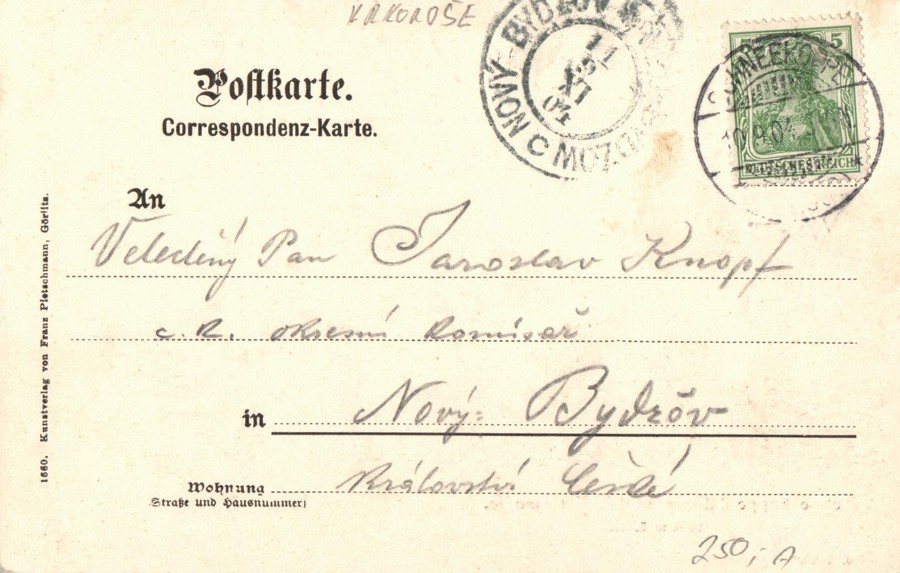 KRKONOŠE
NOVÝ-BYDŽOV
11
XI
04
SCHNEEKOPPE
5 5
DEUTSCHES REICH
Postkarte.
Correspondenz-Karte.
An
Velectěný Pan Jaroslav Knopf
c. k. okresní komisař
in Nový-Bydžov
Království České
Wohnung
(Straße und Hausnummer)
1660. Kunstverlag von Franz Pietschmann, Görlitz.
250,- A